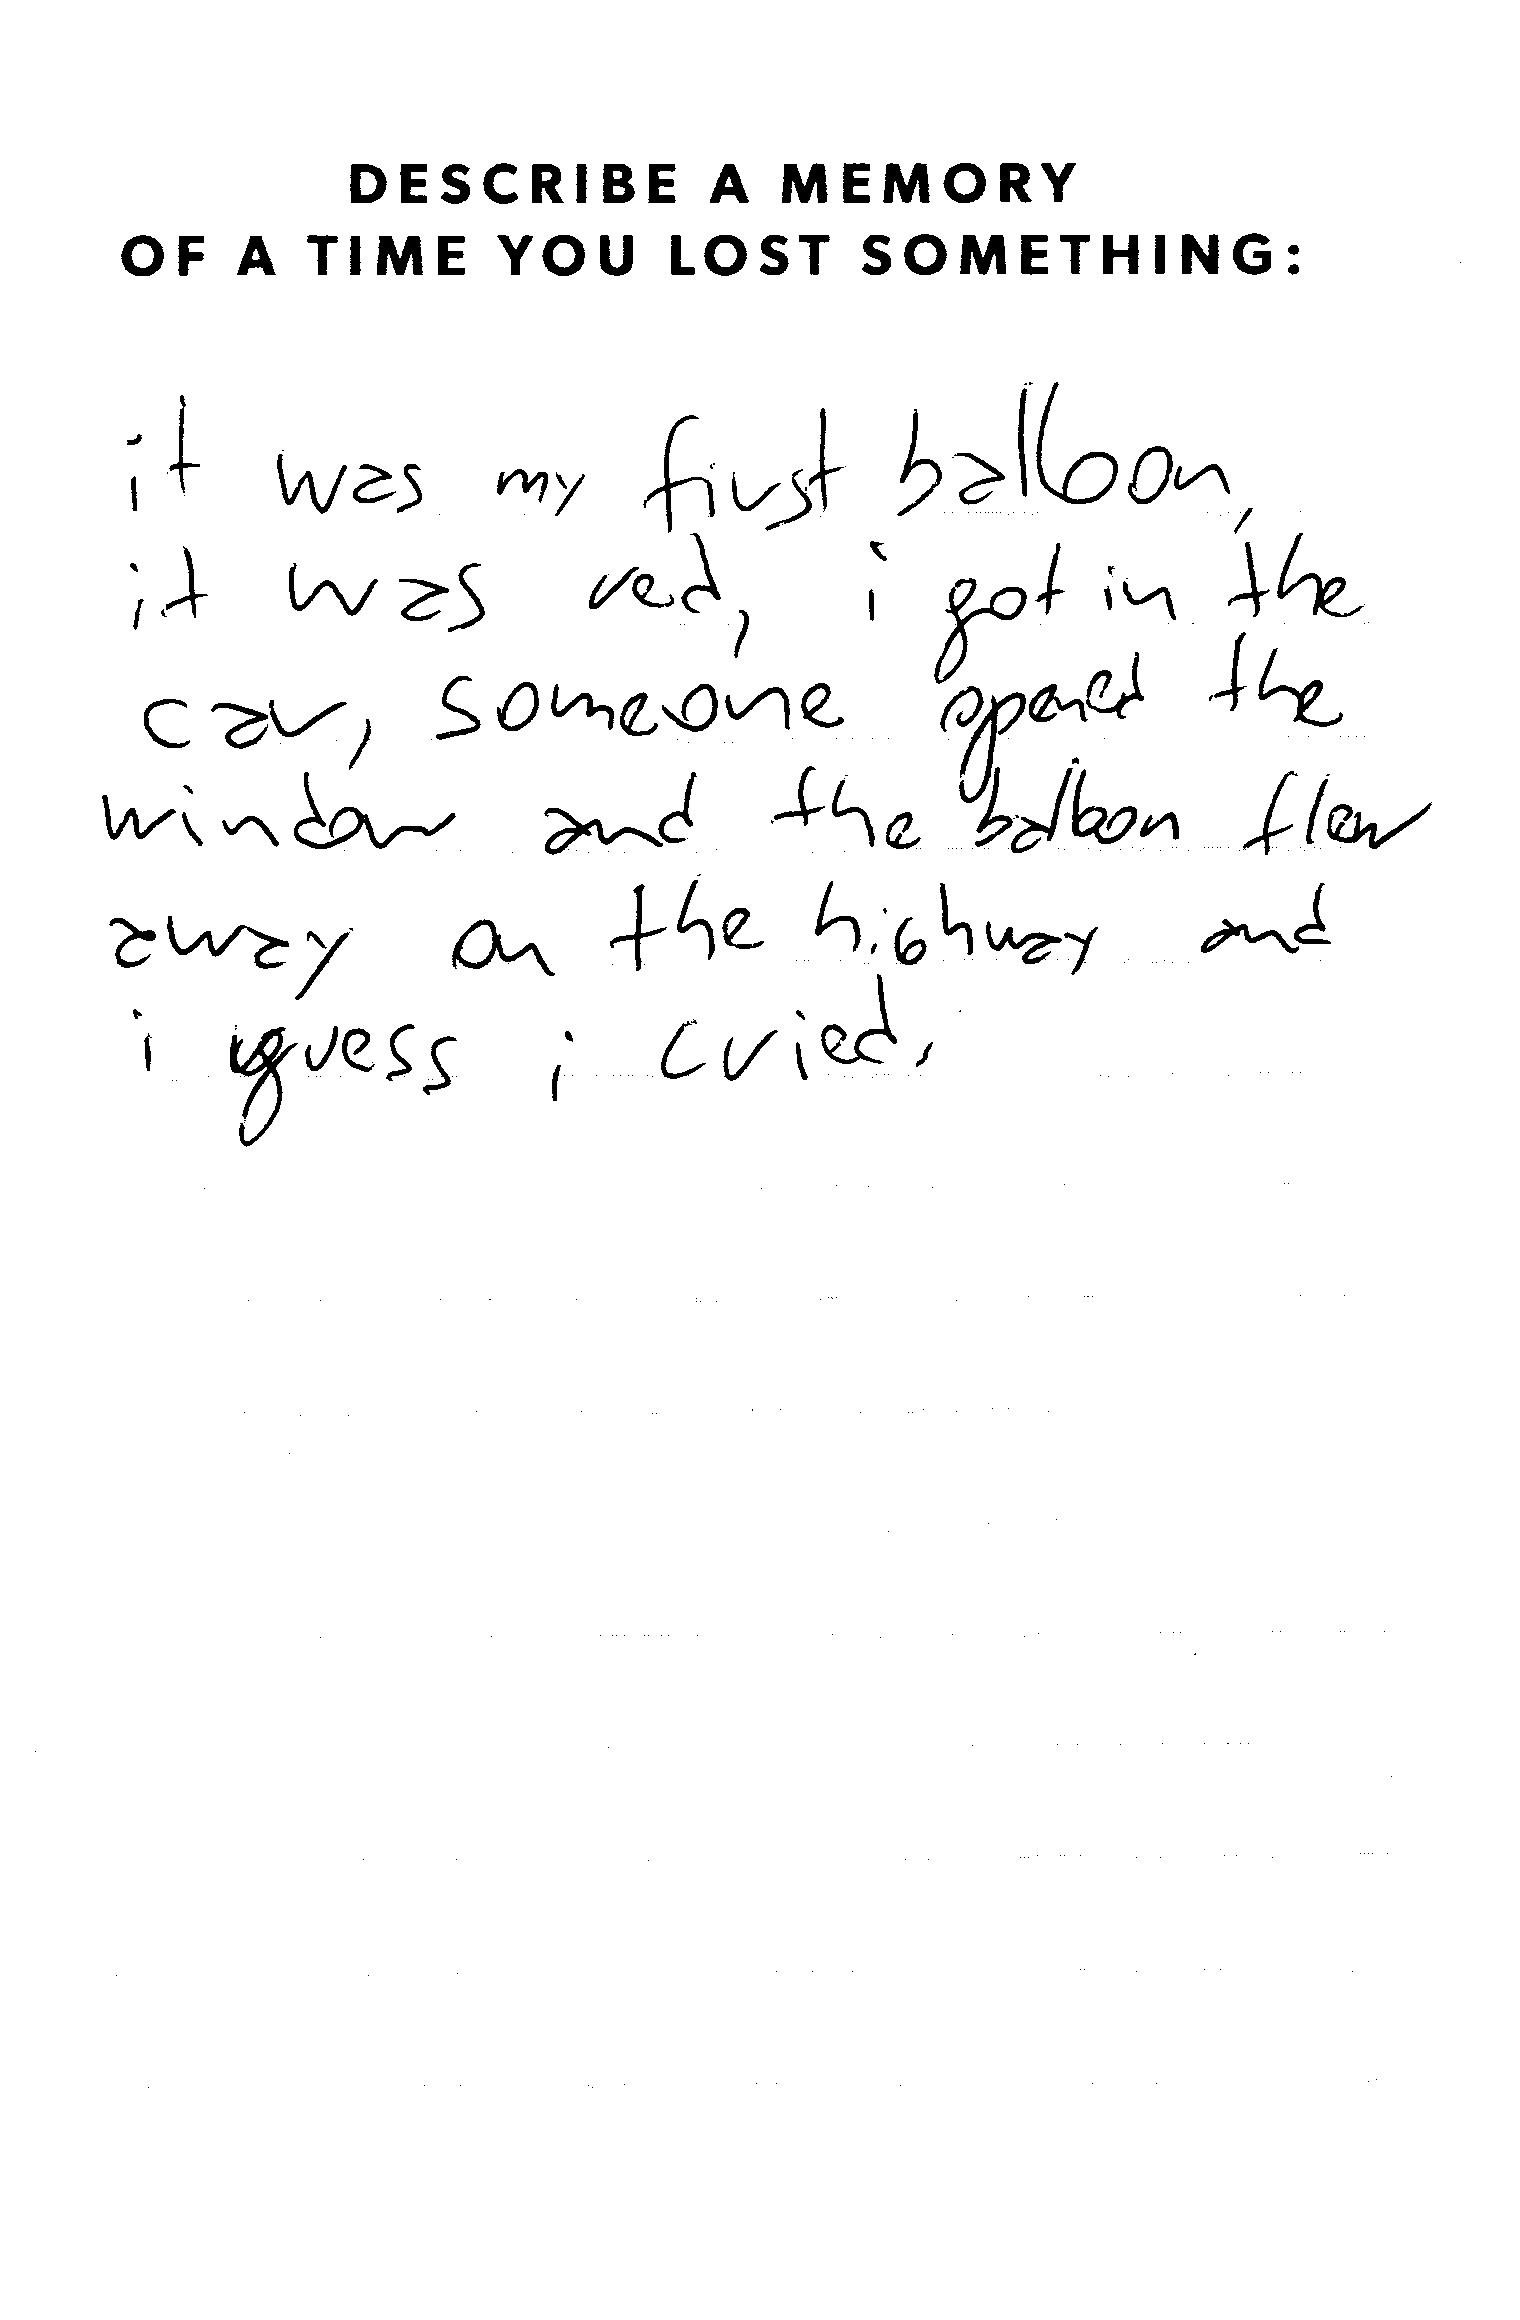 DESCRIBE A MEMORY
OF A TIME YOU LOST SOMETHING:
it was my first balloon,
it was red, i got in the
car, someone opened the
window and the balloon flew
away on the highway and
i guess i cried.